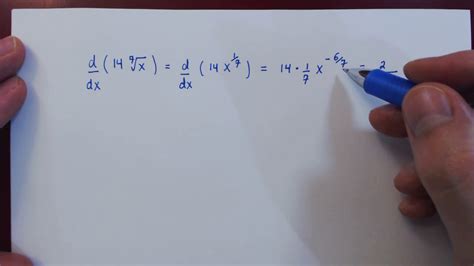 d/dx (14 ⁷√x) = d/dx (14 x^{1/7}) = 14 · 1/7 x^{-6/7} = 2/